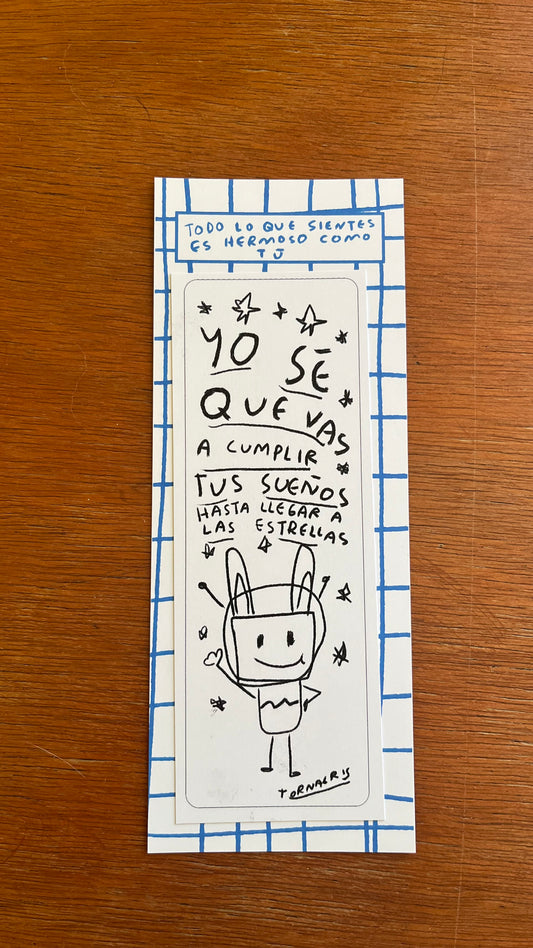 TODO LO QUE SIENTES
ES HERMOSO COMO
TÚ
YO SÉ
QUE VAS
A CUMPLIR
TUS SUEÑOS
HASTA LLEGAR A
LAS ESTRELLAS